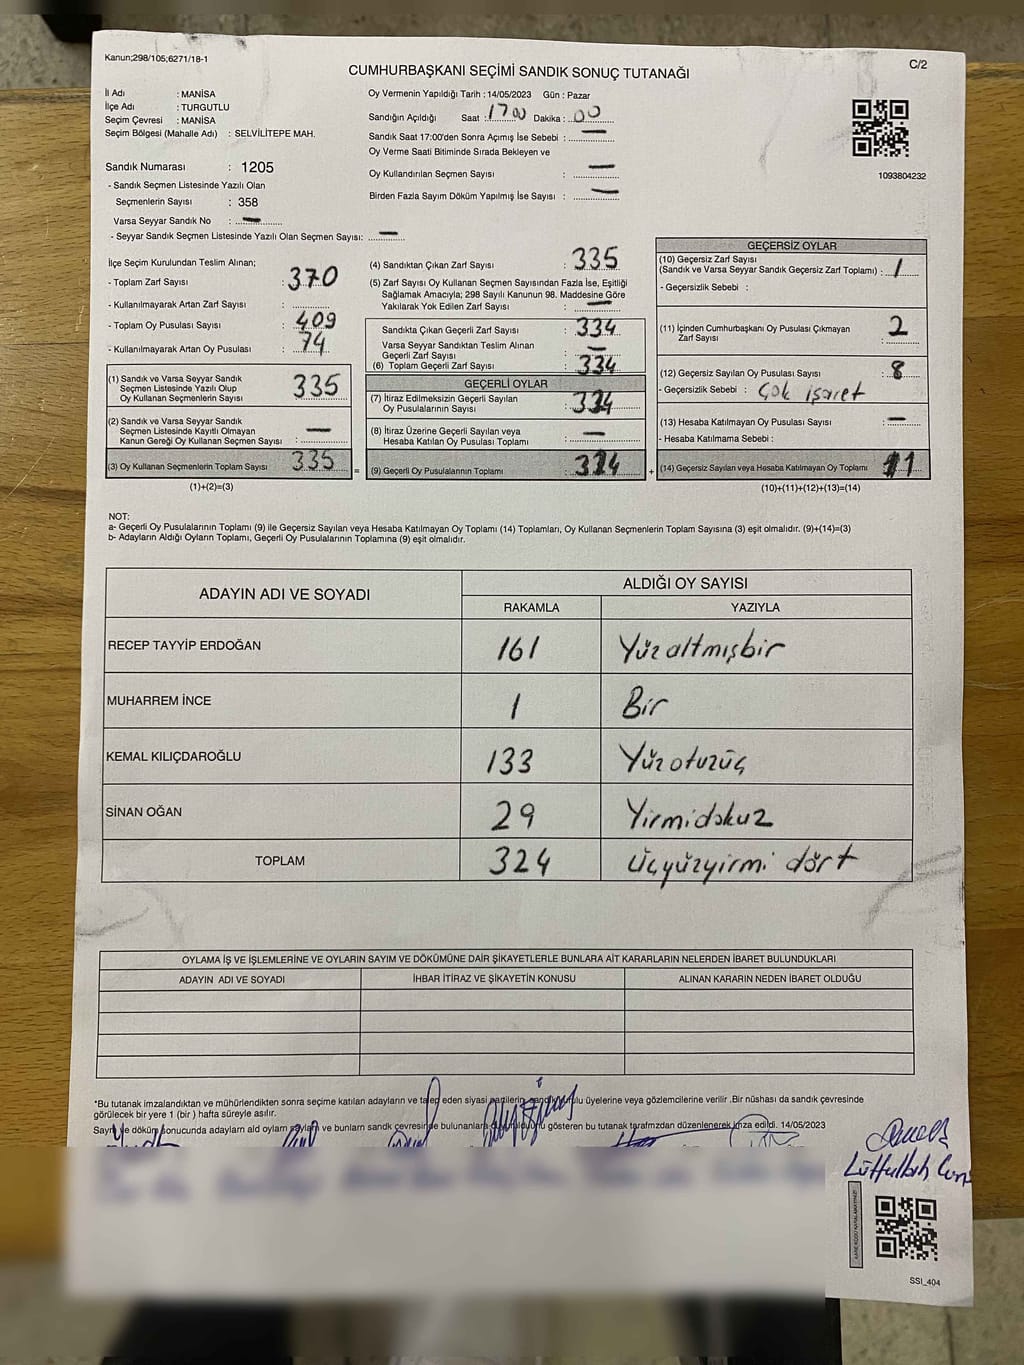 Kanun;298/105;6271/18-1
C/2
CUMHURBAŞKANI SEÇİMİ SANDIK SONUÇ TUTANAĞI
İl Adı : MANİSA
İlçe Adı : TURGUTLU
Seçim Çevresi : MANİSA
Seçim Bölgesi (Mahalle Adı) : SELVİLİTEPE MAH.
Sandık Numarası : 1205
- Sandık Seçmen Listesinde Yazılı Olan
Seçmenlerin Sayısı : 358
Varsa Seyyar Sandık No : —
- Seyyar Sandık Seçmen Listesinde Yazılı Olan Seçmen Sayısı: —
Oy Vermenin Yapıldığı Tarih : 14/05/2023 Gün : Pazar
Sandığın Açıldığı Saat : 1700 Dakika : 00
Sandık Saat 17:00'den Sonra Açımış İse Sebebi : —
Oy Verme Saati Bitiminde Sırada Bekleyen ve
Oy Kullandırılan Seçmen Sayısı : —
Birden Fazla Sayım Döküm Yapılmış İse Sayısı : —
1093804232
İlçe Seçim Kurulundan Teslim Alınan;
- Toplam Zarf Sayısı : 370
- Kullanılmayarak Artan Zarf Sayısı :
- Toplam Oy Pusulası Sayısı : 409
- Kullanılmayarak Artan Oy Pusulası : 74
(1) Sandık ve Varsa Seyyar Sandık
Seçmen Listesinde Yazılı Olup
Oy Kullanan Seçmenlerin Sayısı : 335
(2) Sandık ve Varsa Seyyar Sandık
Seçmen Listesinde Kayıtlı Olmayan
Kanun Gereği Oy Kullanan Seçmen Sayısı : —
(3) Oy Kullanan Seçmenlerin Toplam Sayısı : 335 =
(1)+(2)=(3)
(4) Sandıktan Çıkan Zarf Sayısı : 335
(5) Zarf Sayısı Oy Kullanan Seçmen Sayısından Fazla İse, Eşitliği
Sağlamak Amacıyla; 298 Sayılı Kanunun 98. Maddesine Göre
Yakılarak Yok Edilen Zarf Sayısı : —
Sandıkta Çıkan Geçerli Zarf Sayısı : 334
Varsa Seyyar Sandıktan Teslim Alınan
Geçerli Zarf Sayısı : —
(6) Toplam Geçerli Zarf Sayısı : 334
GEÇERLİ OYLAR
(7) İtiraz Edilmeksizin Geçerli Sayılan
Oy Pusulalarının Sayısı : 324
(8) İtiraz Üzerine Geçerli Sayılan veya
Hesaba Katılan Oy Pusulası Toplamı : —
(9) Geçerli Oy Pusulalarının Toplamı : 324 +
GEÇERSİZ OYLAR
(10) Geçersiz Zarf Sayısı
(Sandık ve Varsa Seyyar Sandık Geçersiz Zarf Toplamı) : 1
- Geçersizlik Sebebi :
(11) İçinden Cumhurbaşkanı Oy Pusulası Çıkmayan
Zarf Sayısı : 2
(12) Geçersiz Sayılan Oy Pusulası Sayısı : 8
- Geçersizlik Sebebi : Çok işaret
(13) Hesaba Katılmayan Oy Pusulası Sayısı : —
- Hesaba Katılmama Sebebi :
(14) Geçersiz Sayılan veya Hesaba Katılmayan Oy Toplamı : 11
(10)+(11)+(12)+(13)=(14)
NOT:
a- Geçerli Oy Pusulalarının Toplamı (9) ile Geçersiz Sayılan veya Hesaba Katılmayan Oy Toplamı (14) Toplamları, Oy Kullanan Seçmenlerin Toplam Sayısına (3) eşit olmalıdır. (9)+(14)=(3)
b- Adayların Aldığı Oyların Toplamı, Geçerli Oy Pusulalarının Toplamına (9) eşit olmalıdır.
ADAYIN ADI VE SOYADI
ALDIĞI OY SAYISI
RAKAMLA YAZIYLA
RECEP TAYYİP ERDOĞAN 161 Yüzaltmışbir
MUHARREM İNCE 1 Bir
KEMAL KILIÇDAROĞLU 133 Yüzotuzüç
SİNAN OĞAN 29 Yirmidokuz
TOPLAM 324 üçyüzyirmi dört
OYLAMA İŞ VE İŞLEMLERİNE VE OYLARIN SAYIM VE DÖKÜMÜNE DAİR ŞİKAYETLERLE BUNLARA AİT KARARLARIN NELERDEN İBARET BULUNDUKLARI
ADAYIN ADI VE SOYADI İHBAR İTİRAZ VE ŞİKAYETİN KONUSU ALINAN KARARIN NEDEN İBARET OLDUĞU
*Bu tutanak imzalandıktan ve mühürlendikten sonra seçime katılan adayların ve talep eden siyasi partilerin sandık kurulu üyelerine veya gözlemcilerine verilir .Bir nüshası da sandık çevresinde
görülecek bir yere 1 (bir ) hafta süreyle asılır.
Sayım ve döküm sonucunda adayların ald oyların sayıları ve bunların sandk çevresinde bulunanlara duyurulduğu gösteren bu tutanak tarafmzdan düzenlenerek imza edildi. 14/05/2023
Lütfullah
SSI_404